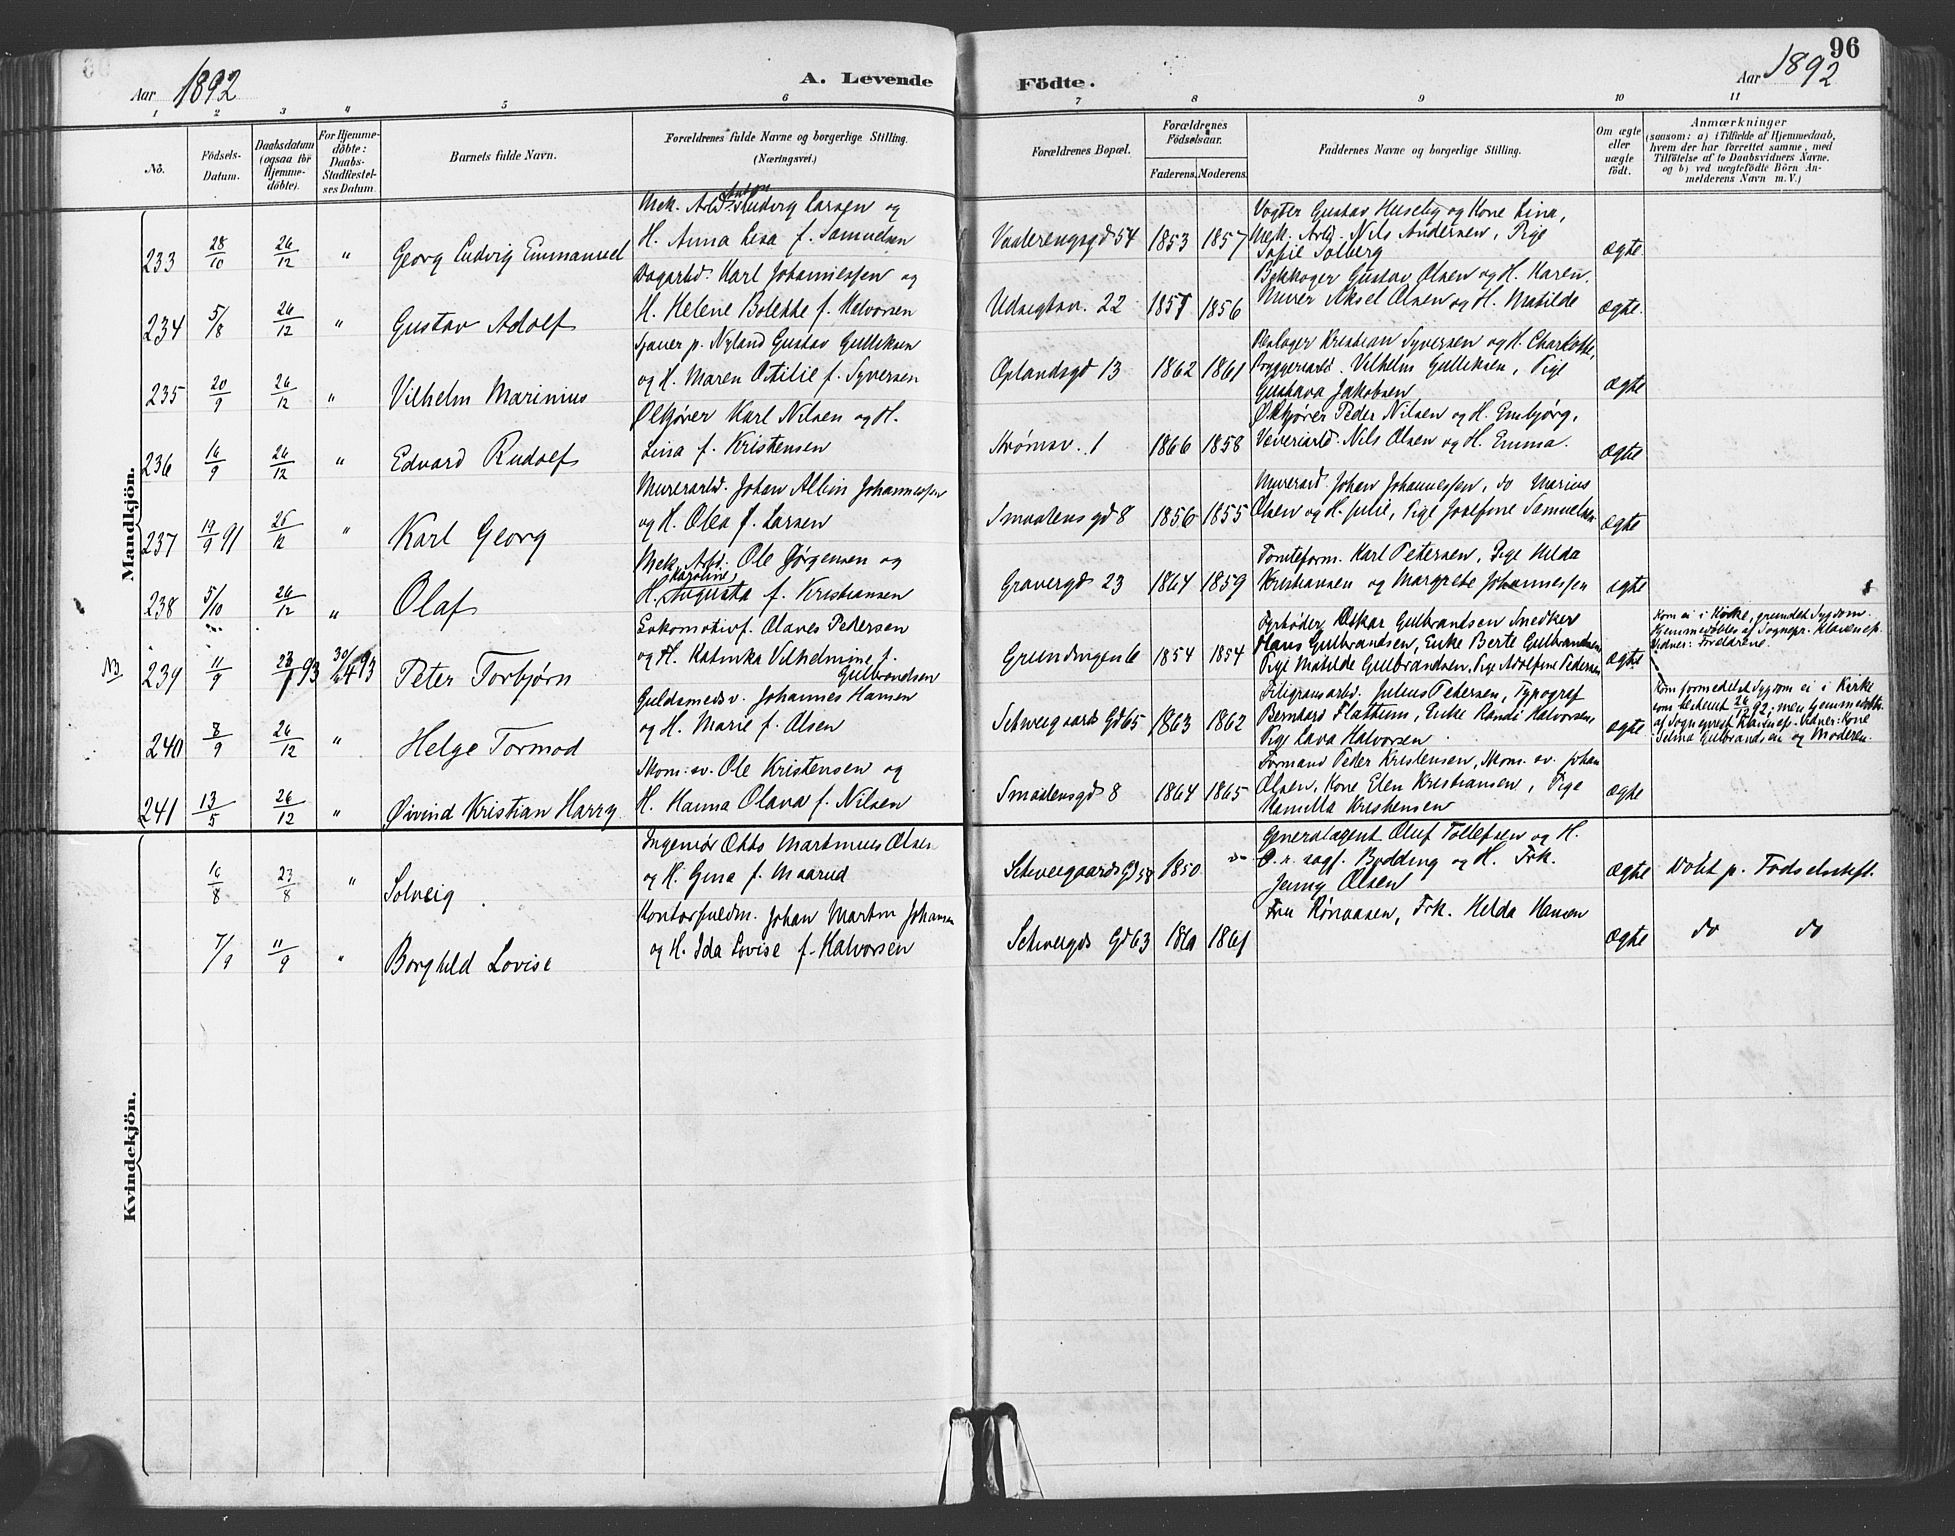 96
Aar 1892
A. Levende
Födte.
Aar 1892
1 2 3 4 5 6 7 8 9 10 11
No.
Födsels-Datum.
Daabsdatum (ogsaa for Hjemmedöbte).
For Hjemmedöbte: Daabs-Stadfæstelses Datum.
Barnets fulde Navn.
Forældrenes fulde Navne og borgerlige Stilling.
(Næringsvei.)
Forældrenes Bopæl.
Forældrenes Födselsaar.
Faderens. Moderens.
Faddernes Navne og borgerlige Stilling.
Om ægte eller uægte födt.
Anmærkninger
(saasom: a) i Tilfælde af Hjemmedaab, hvem der har forrettet samme, med Tilföielse af to Daabsvidners Navne. og b) ved uægtefödte Börn Anmelderens Navn m. V.)
Mandkjön.
233 28/10 26/12 " Georg Ludvig Emmanuel
Mek. Arb. Anton Ludvig Larsen og
H. Anna Lisa f. Samuelsen
Vaalerengsgd 54 1853 1857
Vogter Gustav Huseby og Kone Lina,
Mek. Arbd. Nils Andersen, Pige
Sofie Solberg
ægte.
234 5/8 26/12 " Gustav Adolf
Dagarbd. Karl Johannessen og
H. Helene Bolette f. Halvorsen
Udsigtsv. 22 1851 1856
Bekkoger Gustav Olsen og H. Karen.
Murer Aksel Olsen og H. Matilde
ægte.
235 20/9 26/12 " Vilhelm Marinius
Sjauer p. Nyland Gustav Gulliksen
og H. Maren Otilie f. Syversen
Oplandsgd 13 1862 1861
Kristian Syversen og H. Charlotte,
Bryggeriarbd. Vilhelm Gulliksen, Pige
Gustava Jakobsen
ægte
236 16/9 26/12 " Edvard Rudolf
Ølkjører Karl Nilsen og H.
Lina f. Kristensen
Strømsv. 1 1866 1858
Ølkjører Peder Nilsen og H. Embjørg,
Veveriarbd. Nils Olsen og H. Emma.
ægte
237 19/9 91 26/12 " Karl Georg
Murerarbd. Johan Albin Johannessen
og H. Olea f. Larsen
Smaalensgd 8 1856 1855
Murerarbd. Johan Johannessen, do Marius
Olsen og H. Julie, Pige Josefine Samuelsen
ægte
238 5/10 26/12 " Olaf
Mek. Arbd. Ole Jørgensen og
H. Karoline Augusta f. Kristiansen
Gravergd 23 1864 1859
Tomteform. Karl Petersen, Pige Helda
Kristiansen og Margrete Johannessen
ægte
NB 239 11/9 93 30/4 93 Peter Torbjørn
Lokomotivf. Olaves Pedersen
og H. Katinka Vilhelmine f.
Gulbrandsen
Grændsingen 6 1854 1854
Fyrbøder Oskar Gulbrandsen Snedker
Hans Gulbrandsen, Enke Berte Gulbrandsen
Pige Matilde Gulbrandsen, Pige Adolfine Pedersen
ægte
Kom ei i Kirke, grundet Sygdom.
Hjemmedøbtes af Sognepr. Klavenes.
Vidner: Forældrene.
240 8/9 26/12 " Helge Tormod
Guldsmedsv. Johannes Hansen
og H. Marie f. Olsen
Schweigaards Gd 65 1863 1862
Filigransarbd. Julius Petersen, Typograf
Bernhard Flathum, Enke Randi Halvorsen
Pige Lava Halvorsen.
ægte
Kom formedelst Sygdom ei i Kirke
som bestemt 26/12 92; men hjemmedøbt
af Sogneprest Klavenes. Vidner: Kone
Selma Gulbrandsen og Moderen.
241 13/5 26/12 " Øivind Kristian Harry
Skom: sv. Ole Kristensen og
H. Hanna Olava f. Nilsen
Smaalensgd 8 1864 1865
Formand Peder Kristensen, Skom. sv. Johan
Olsen, Kone Elen Kristiansen, Pige
Kamilla Kristensen
ægte
Kvindekjön.
16/8 23/8 " Solveig.
Ingeniør Otto Martinius Olsen
og H. Gina f. Maarud
Schweigaards Gd 58 1850 do
Generalagent Oluf Tollefsen og H.
O. r. sagf. Bødding og H. Frk.
Jenny Olsen
ægte
Døbt p. Fødselsstift.
7/9 11/9 " Borghild Lovise
Kontorfuldm. Johan Martin Johansen
og H. Ida Lovise f. Halvorsen
Schweigds Gd 63 1861
Fru Rønaasen, Frk. Helda Hansen
ægte
do do